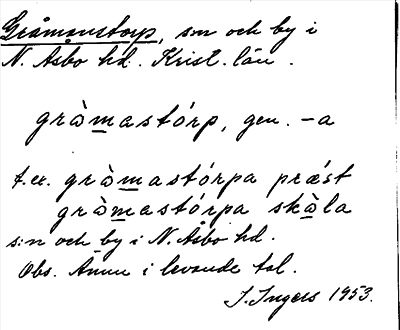 Gråmanstorp, sn och by i
N. Åsbo hd. Krist. län.
gràmastórp, gen. -a
t.ex. gràmastórpa præ̀st
gràmastórpa skàla
s:n och by i N. Åsbo hd.
Obs. Ännu i levande tal.
I. Ingers 1953.